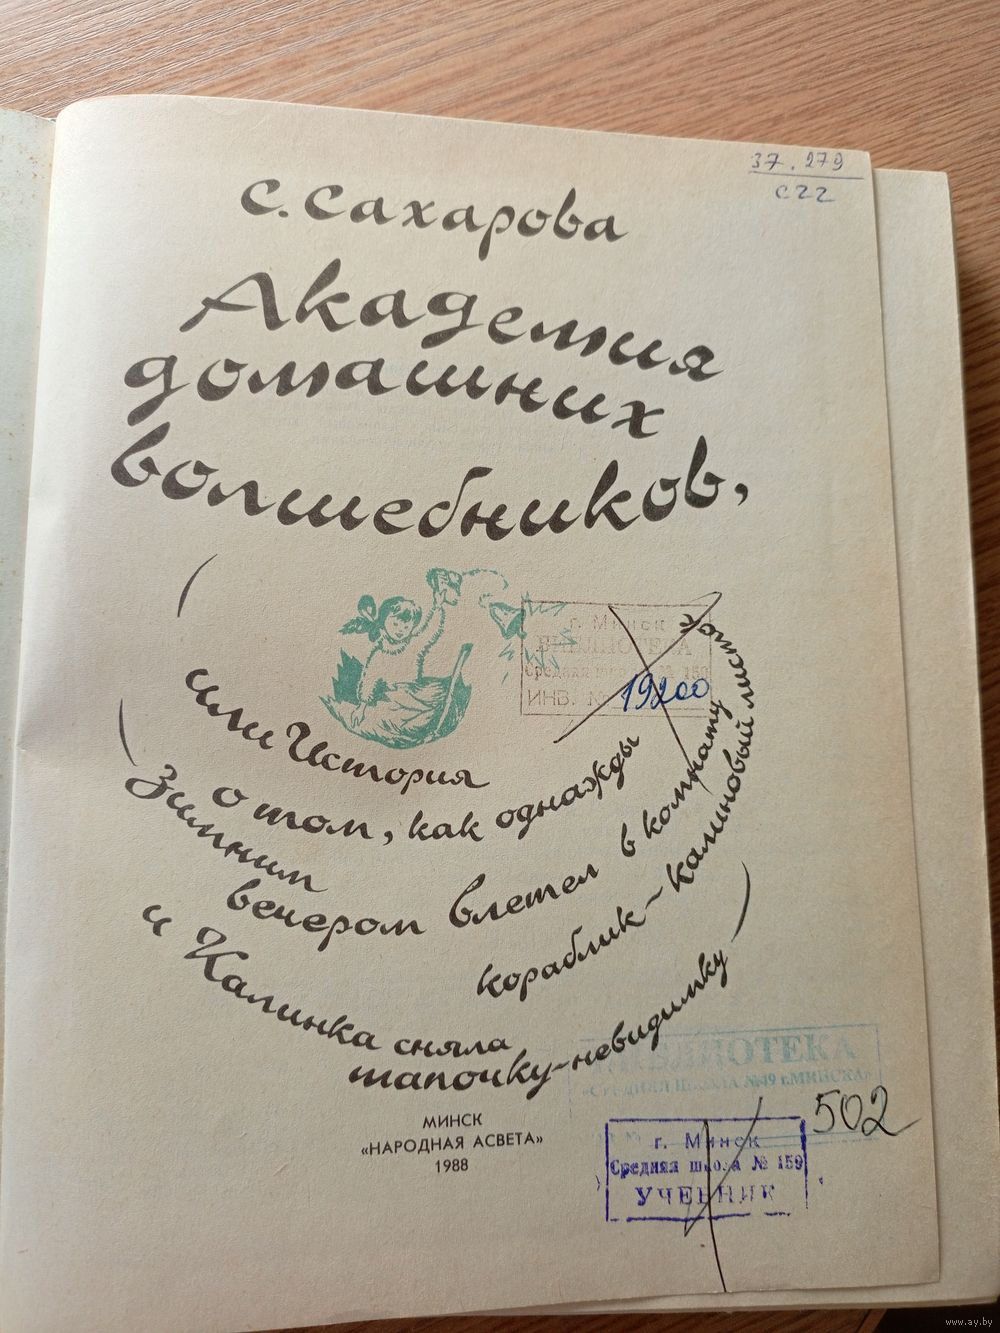 37.279
С22
С. Сахарова
Академия
домашних
волшебников,
г. Минск
БИБЛИОТЕКА
Средняя школа № 159
ИНВ. № 19200
или История
о том, как однажды
Зимним
вечером влетел в комнату
кораблик-калиновый листок
и Калинка сняла
тапочку-невидимку
БИБЛИОТЕКА
«СРЕДНЯЯ ШКОЛА №49 г.МИНСКА»
МИНСК
«НАРОДНАЯ АСВЕТА»
1988
502
г. Минск
Средняя школа № 159
УЧЕБНИК
www.ay.by